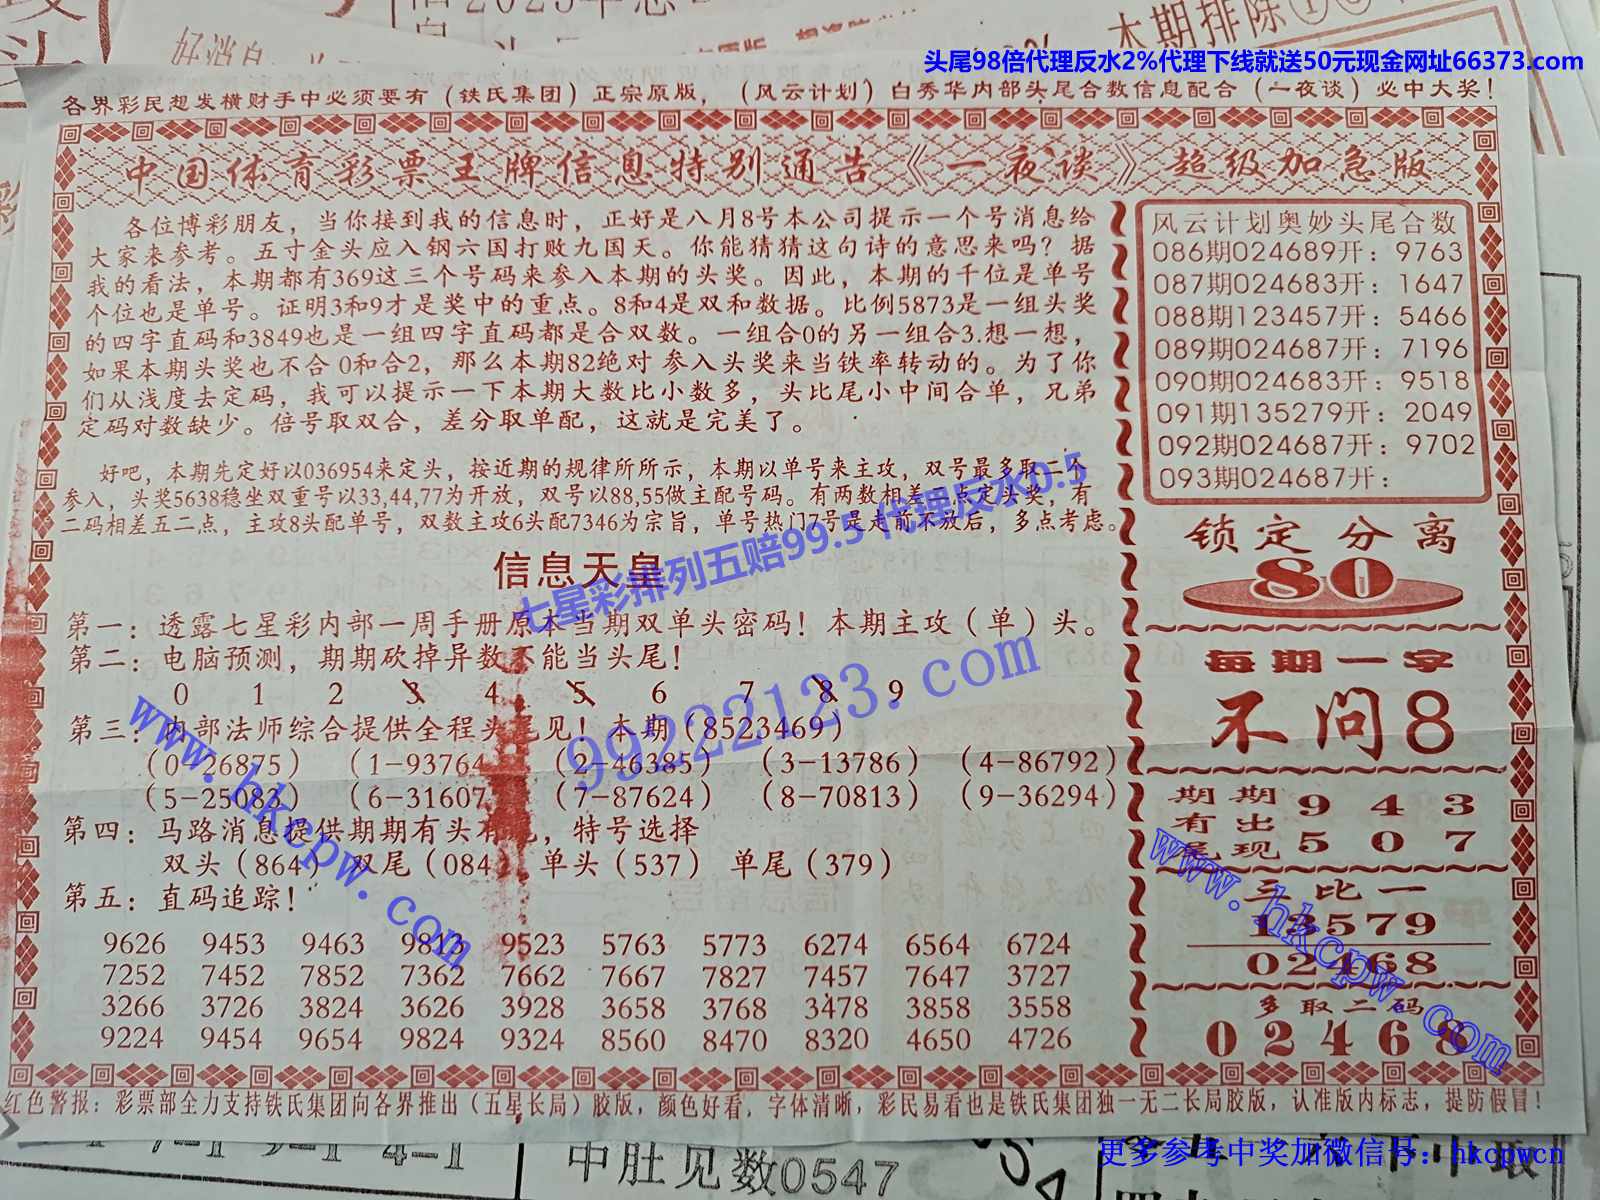 本期排除
好消息
头尾98倍代理反水2%代理下线就送50元现金网址66373.com
各界彩民想发横财手中必须要有（铁氏集团）正宗原版，（风云计划）白秀华内部头尾合数信息配合（一夜谈）必中大奖！
中国体育彩票王牌信息特别通告《一夜谈》超级加急版
各位博彩朋友，当你接到我的信息时，正好是八月8号本公司提示一个号消息给
大家来参考。五寸金头应入钢六国打败九国天。你能猜猜这句诗的意思来吗？据
我的看法，本期都有369这三个号码来参入本期的头奖。因此，本期的千位是单号
个位也是单号。证明3和9才是奖中的重点。8和4是双和数据。比例5873是一组头奖
的四字直码和3849也是一组四字直码都是合双数。一组合0的另一组合3.想一想，
如果本期头奖也不合0和合2，那么本期82绝对参入头奖来当铁率转动的。为了你
们从浅度去定码，我可以提示一下本期大数比小数多，头比尾小中间合单，兄弟
定码对数缺少。倍号取双合，差分取单配，这就是完美了。
好吧，本期先定好以036954来定头，按近期的规律所所示，本期以单号来主攻，双号最多取二个
参入，头奖5638稳坐双重号以33,44,77为开放，双号以88,55做主配号码。有两数相差二点定头奖，有
二码相差五二点，主攻8头配单号，双数主攻6头配7346为宗旨，单号热门7号是走前不放后，多点考虑。
信息天皇
七星彩排列五赔99.5 代理反水0.5
第一：透露七星彩内部一周手册原本当期双单头密码！本期主攻（单）头。
第二：电脑预测，期期砍掉异数不能当头尾！
0 1 2 3 4 5 6 7 8 9
第三：内部法师综合提供全程头尾见！本期（8523469）
（0-26875）（1-93764）（2-46385）（3-13786）（4-86792）
（5-25083）（6-31607）（7-87624）（8-70813）（9-36294）
第四：马路消息提供期期有头有尾，特号选择
双头（864）双尾（084）单头（537）单尾（379）
第五：直码追踪！
9626 9453 9463 9813 9523 5763 5773 6274 6564 6724
7252 7452 7852 7362 7662 7667 7827 7457 7647 3727
3266 3726 3824 3626 3928 3658 3768 3478 3858 3558
9224 9454 9654 9824 9324 8560 8470 8320 4650 4726
风云计划奥妙头尾合数
086期024689开：9763
087期024683开：1647
088期123457开：5466
089期024687开：7196
090期024683开：9518
091期135279开：2049
092期024687开：9702
093期024687开：
锁定分离
80
每期一字
不问8
期期有出尾现
9 4 3
5 0 7
三比一
13579
02468
多取二码
02468
www.hkcpw.com
99222123.com
www.hkcpw.com
红色警报：彩票部全力支持铁氏集团向各界推出（五星长局）胶版，颜色好看，字体清晰，彩民易看也是铁氏集团独一无二长局胶版，认准版内标志，提防假冒！
中肚见数0547
更多参考中奖加微信号：hkcpwcn